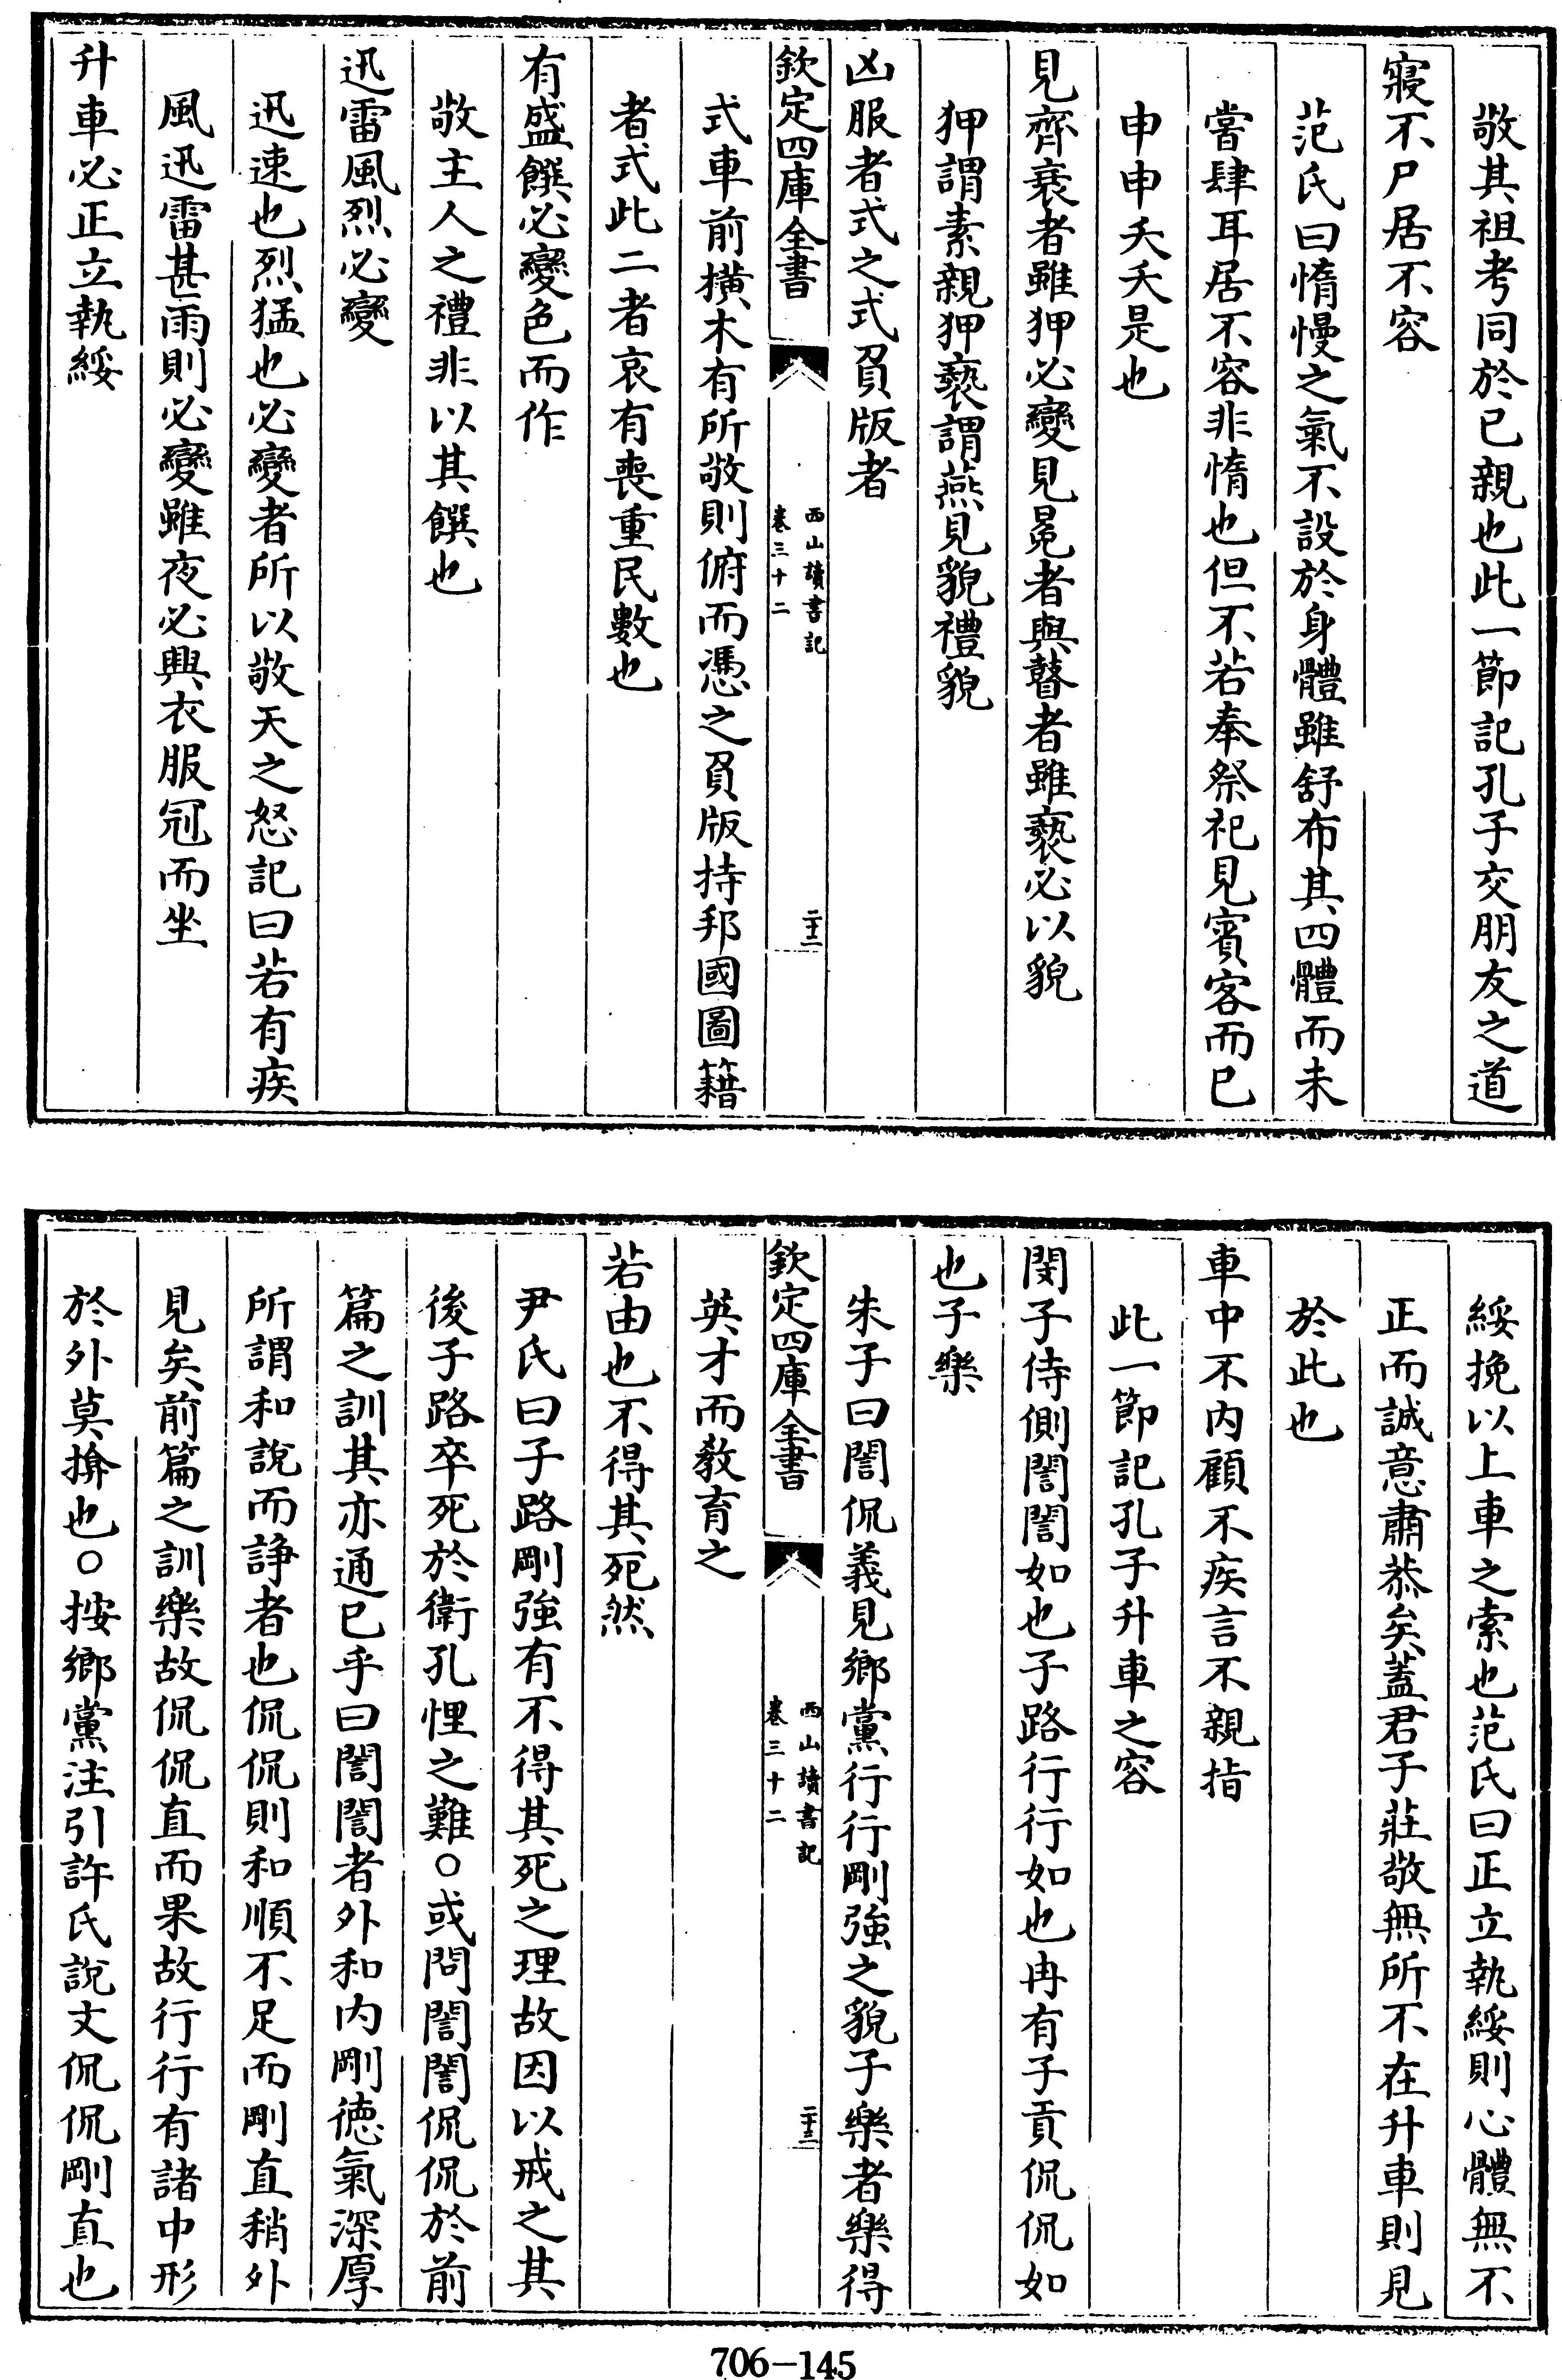 敬其祖考同於已親也此一節記孔子交朋友之道
寢不尸居不容
范氏曰惰慢之氣不設於身體雖舒布其四體而未
嘗肆耳居不容非惰也但不若奉祭祀見賓客而已
申申夭夭是也
見齊衰者雖狎必變見冕者與瞽者雖褻必以貌
狎謂素親狎褻謂燕見貌禮貌
凶服者式之式負版者
欽定四庫全書
西山讀書記
卷三十二
二十二
式車前橫木有所敬則俯而憑之負版持邦國圖籍
者式此二者哀有喪重民數也
有盛饌必變色而作
敬主人之禮非以其饌也
迅雷風烈必變
迅速也烈猛也必變者所以敬天之怒記曰若有疾
風迅雷甚雨則必變雖夜必興衣服冠而坐
升車必正立執綏
綏挽以上車之索也范氏曰正立執綏則心體無不
正而誠意肅恭矣蓋君子莊敬無所不在升車則見
於此也
車中不内顧不疾言不親指
此一節記孔子升車之容
閔子侍側誾誾如也子路行行如也冉有子貢侃侃如
也子樂
朱子曰誾侃義見鄉黨行行剛強之貌子樂者樂得
欽定四庫全書
西山讀書記
卷三十二
二十三
英才而敎育之
若由也不得其死然
尹氏曰子路剛強有不得其死之理故因以戒之其
後子路卒死於衛孔悝之難○或問誾誾侃侃於前
篇之訓其亦通已乎曰誾誾者外和内剛德氣深厚
所謂和說而諍者也侃侃則和順不足而剛直稍外
見矣前篇之訓樂故侃侃直而果故行行有諸中形
於外莫揜也○按鄉黨注引許氏說文侃侃剛直也
706-145